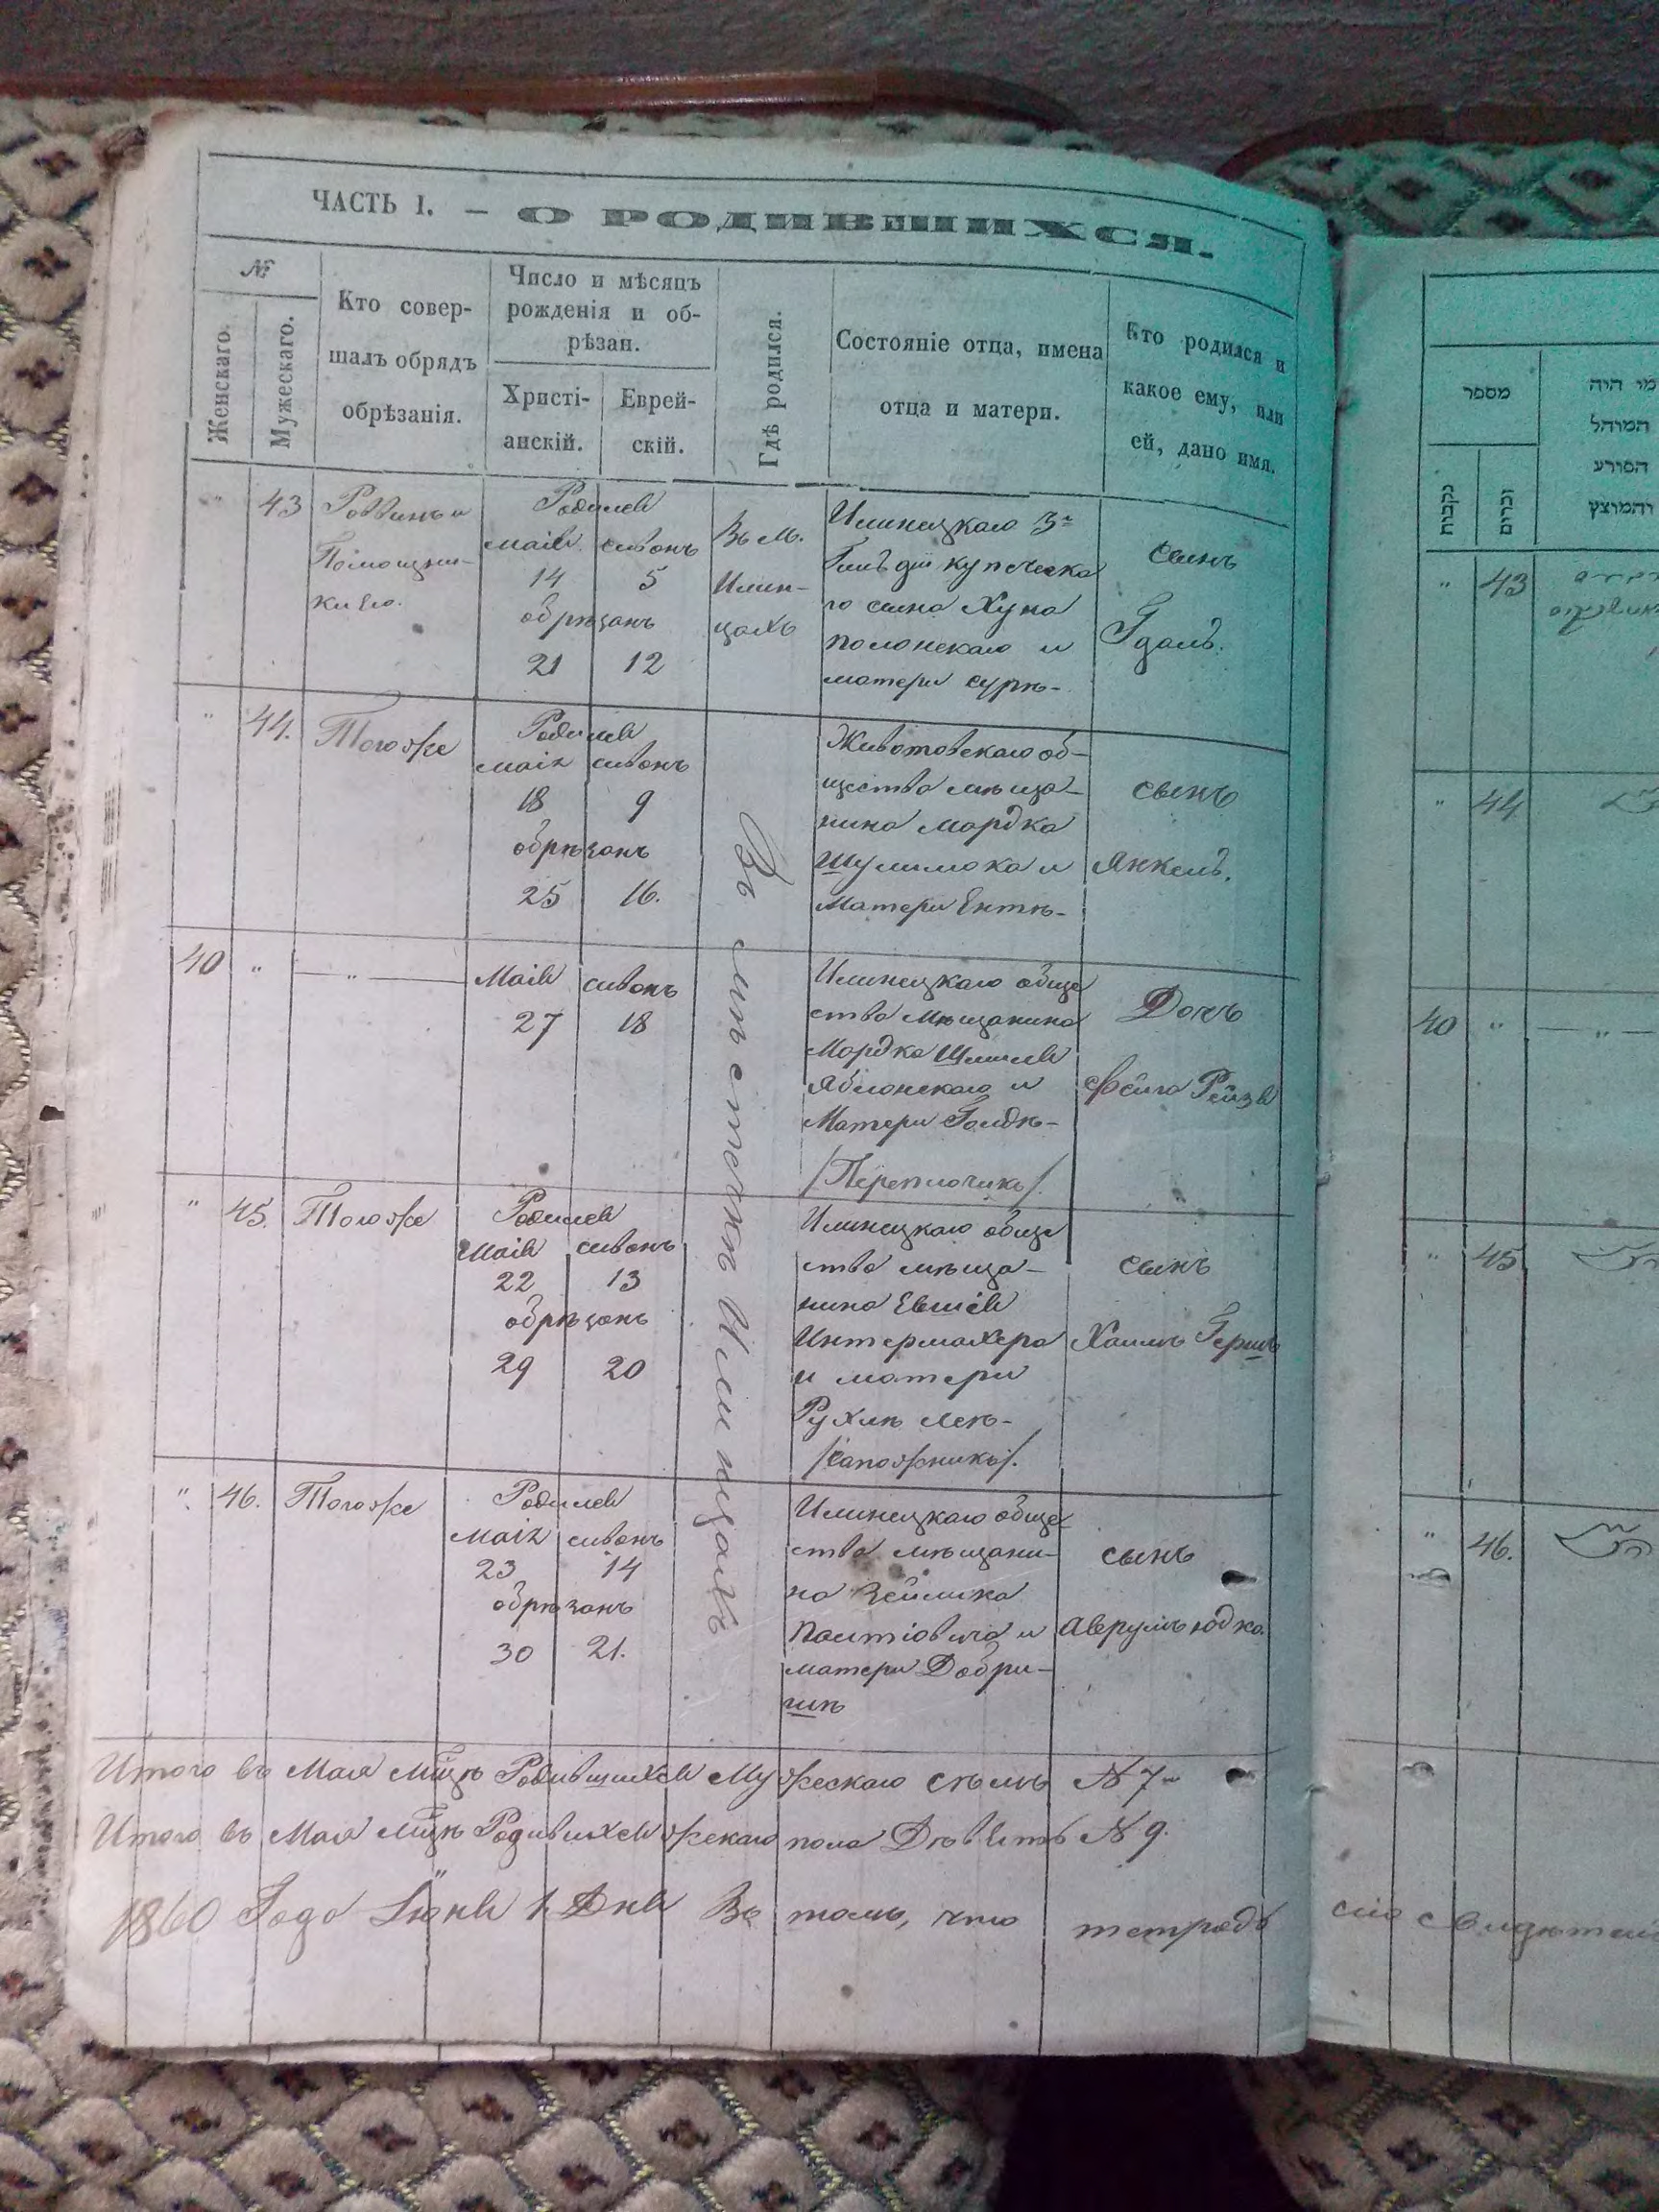 ЧАСТЬ I. — О РОДИВШИХСЯ.
№
Женскаго.
Мужескаго.
Кто совер-
шалъ обрядъ
обрѣзанія.
Число и мѣсяцъ
рожденія и об-
рѣзан.
Христі-
анскій.
Еврей-
скій.
Гдѣ родился.
Состояніе отца, имена
отца и матери.
Кто родился и
какое ему, или
ей, дано имя.
" 43
Раввинъ и
Помощни-
ки Его.
Родился
маія сивонъ
14 5
обрѣзанъ
21 12
Въ м.
Илин-
цахъ
Илинецкаго 3й
Гильдіи купческа
го сына Хуна
полонскаго и
матери сурѣ-
сынъ
Гдаль.
" 44. Тогоже
Родился
маія сивонъ
18 9
обрѣзанъ
25 16.
Въ мѣстечкѣ Илинцахъ
Животовскаго об-
щества мѣща-
нина Мордка
Шулимока и
Матери Ентѣ-
сынъ
Янкель.
40 " — " —
Маія сивонъ
27 18
Илинецкаго обще
ства Мѣщанина
Мордка
Яблонскаго и
Матери Голдѣ-
/Переплочикъ/.
Дочь
Фейга Рейзя
" 45. Тогоже
Родился
Маія сивонъ
22 13
обрѣзанъ
29 20
Илинецкаго обще
ства мѣща-
нина Евшія
Интермахера
и матери
Рухлѣ леѣ-
/сапожникъ/.
сынъ
Хаимъ Гершъ
". 46. Тогоже
Родился
маія сивонъ
23 14
обрѣзанъ
30 21.
Илинецкаго обще
ства мѣщани-
на Зейлика
и
матери Добри-
шѣ
сынъ
Аврумъ Юдко.
Итого въ Мая мцѣ Родившихся Мужескаго семь N 7
Итого въ Мая мцѣ Родившихся женскаго пола Девять N 9.
1860 Года Іюня 1 Дня Въ томъ, что тетрадь
מספר
נקבות
זכרים
מי היה
המוהל
הפורע
והמוצץ
" 43
" 44
40 " — " —
" 45
" 46.
сію